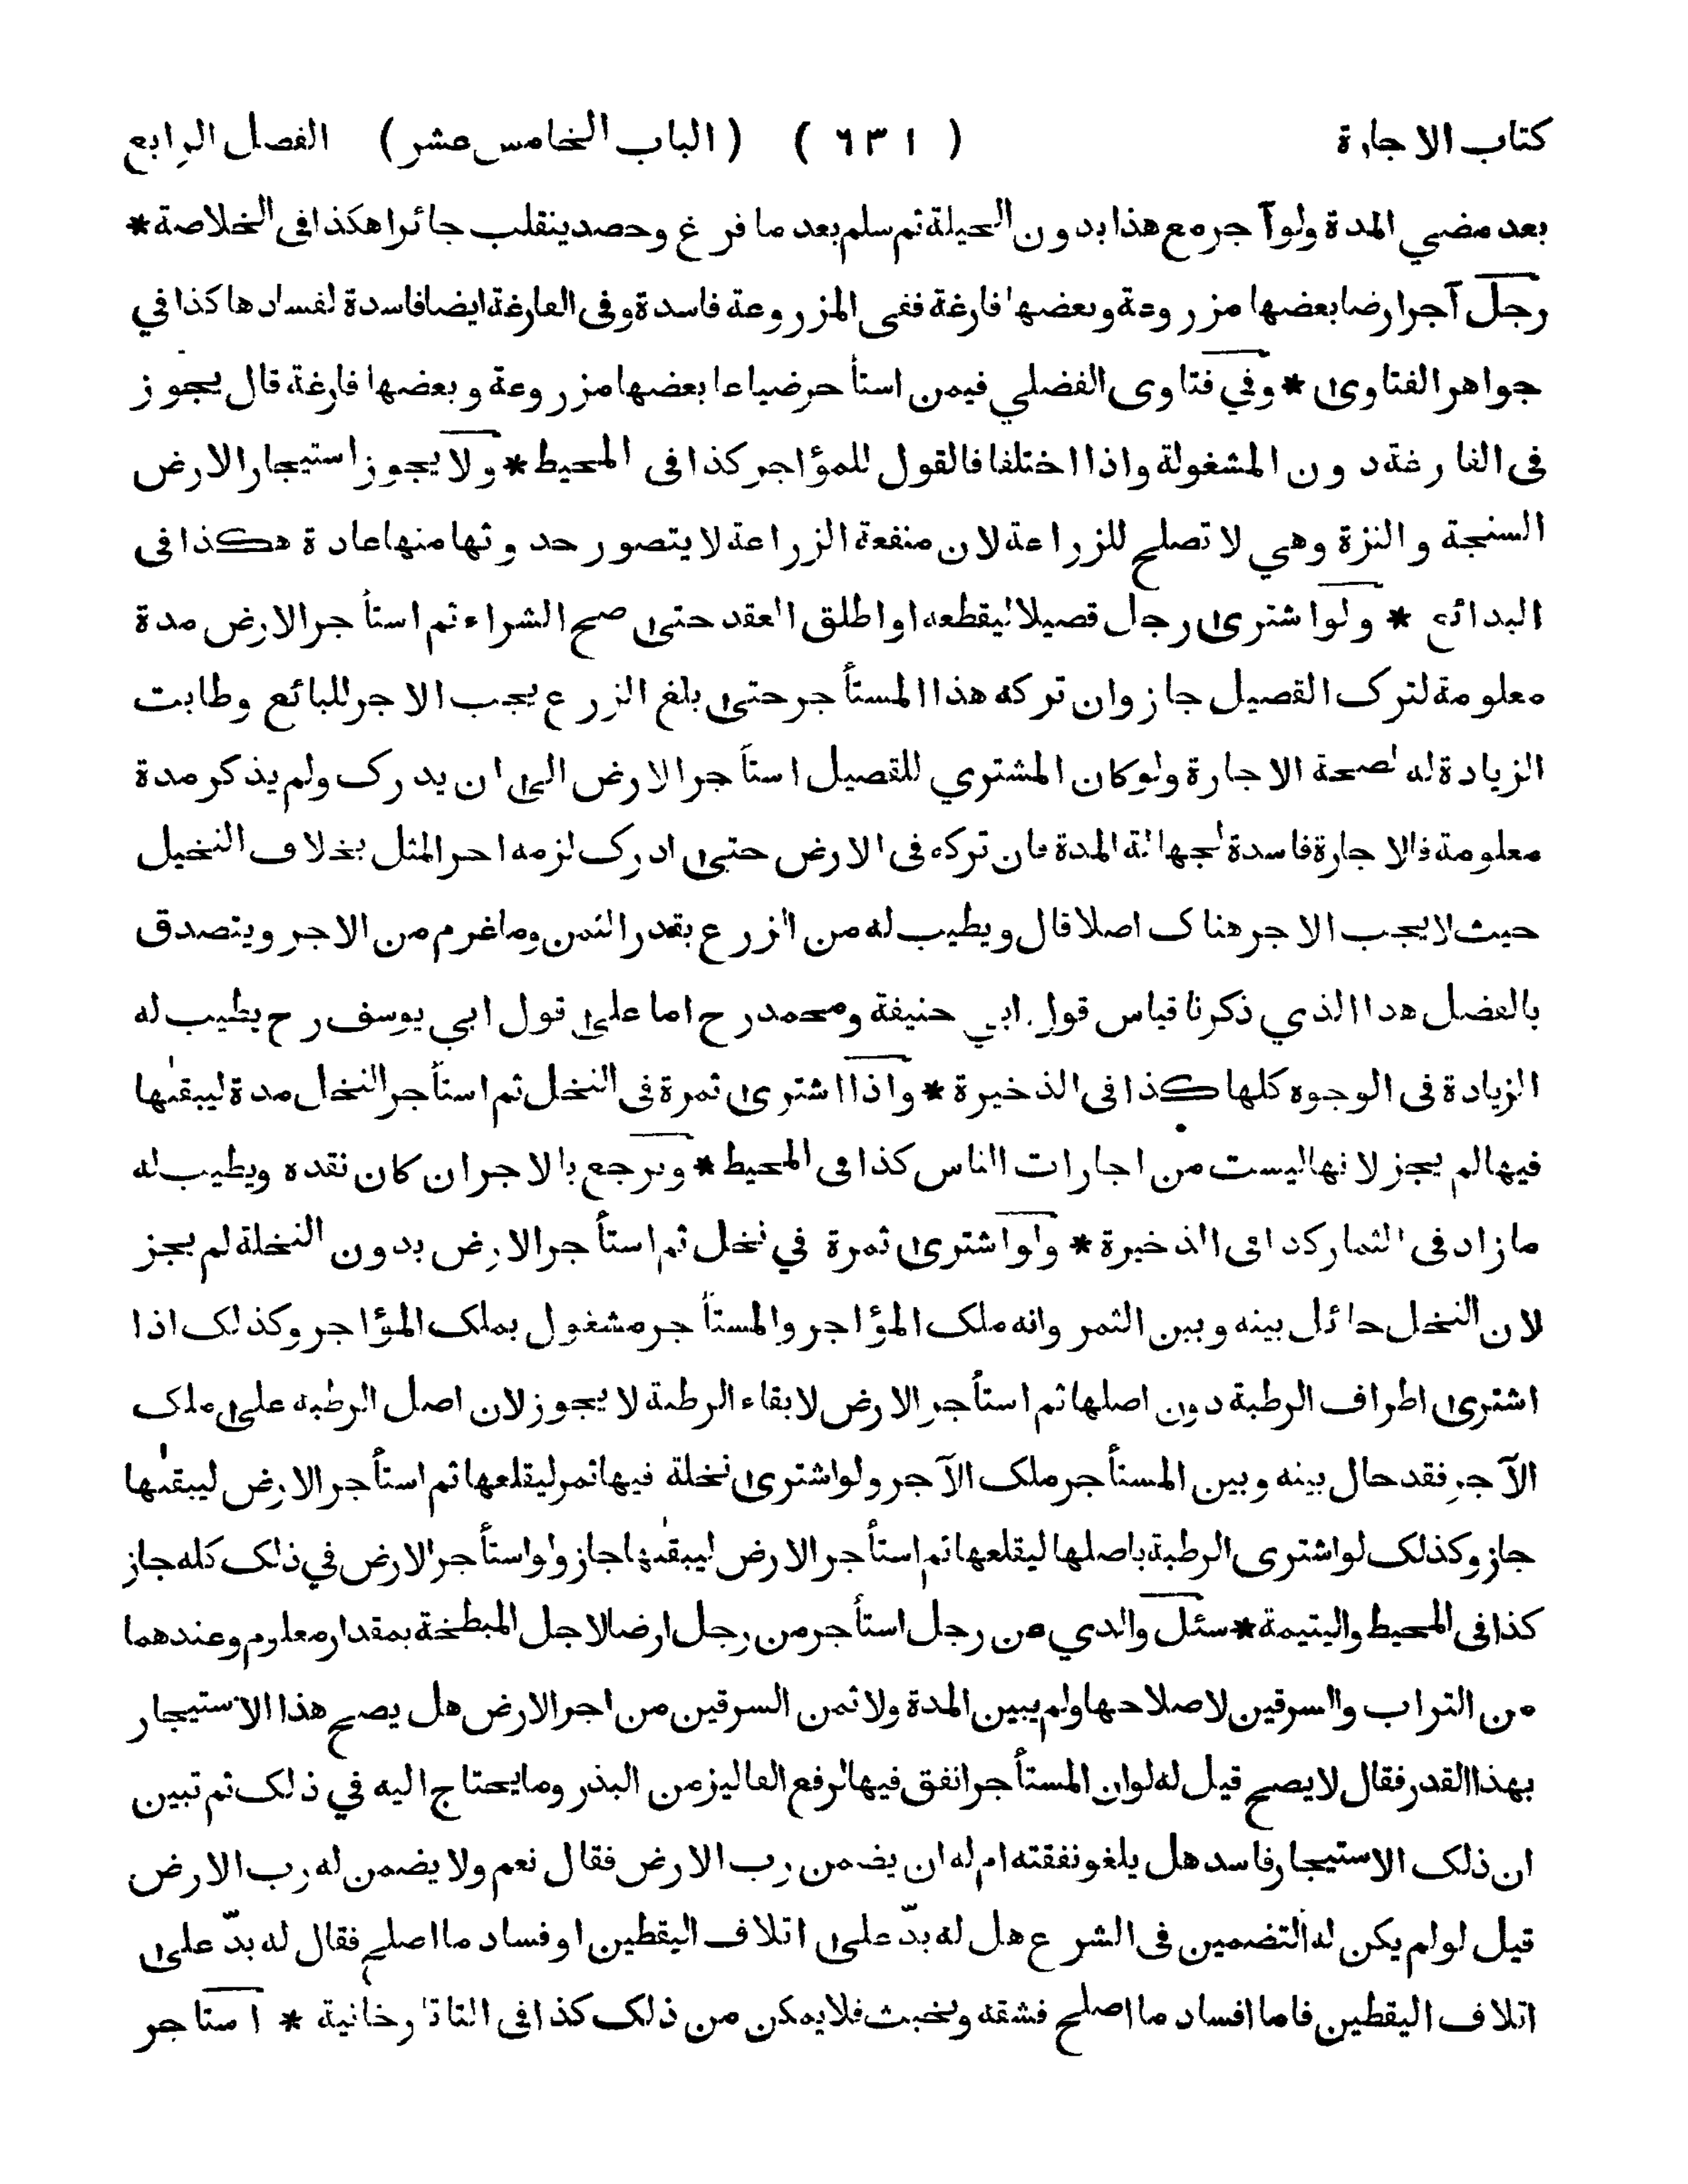 كتاب الاجارة ( ٦٣١ ) ( الباب الخامس عشر ) الفصل الرابع
بعد مضي المدة ولو آجر مع هذا بدون الحيلة ثم سلم بعد ما فرغ وحصد ينقلب جائرا هكذا فى الخلاصة *
رجل آجر ارضا بعضها مزروعة وبعضها فارغة ففى المزروعة فاسدة وفى الفارغة ايضا فاسدة لفسادها كذا في
جواهر الفتاوى * وفي فتاوى الفضلي فيمن استأجر ضياعا بعضها مزروعة وبعضها فارغة قال يجوز
فى الفارغة دون المشغولة واذا اختلفا فالقول للمؤاجر كذا فى المحيط * ولا يجوز استيجار الارض
السنجة والنزة وهي لا تصلح للزراعة لان منفعة الزراعة لا يتصور حدوثها منها عادة هكذا فى
البدائع * ولو اشترى رجل قصيلا ليقطعه او اطلق العقد حتى صح الشراء ثم استأجر الارض مدة
معلومة لترك القصيل جاز وان تركه هذا المستأجر حتى بلغ الزرع يجب الاجر للبائع وطابت
الزيادة له لصحة الاجارة ولو كان المشتري للقصيل استأجر الارض الى ان يدرك ولم يذكر مدة
معلومة فالاجارة فاسدة لجهالة المدة فان تركه فى الارض حتى ادرك لزمه اجر المثل بخلاف النخيل
حيث لا يجب الاجر هناك اصلا قال ويطيب له من الزرع بقدر الثمن وما غرم من الاجر ويتصدق
بالفضل هذا الذي ذكرنا قياس قول ابي حنيفة ومحمد رح اما على قول ابي يوسف رح يطيب له
الزيادة فى الوجوه كلها كذا فى الذخيرة * واذا اشترى ثمرة فى النخل ثم استأجر النخل مدة ليبقٰها
فيها لم يجز لانها ليست من اجارات الناس كذا فى المحيط * ويرجع بالاجر ان كان نقده ويطيب له
ما زاد فى الثمار كذا فى الذخيرة * ولو اشترى ثمرة في نخل ثم استأجر الارض بدون النخلة لم يجز
لان النخل حائل بينه وبين الثمر وانه ملك المؤاجر والمستأجر مشغول بملك المؤاجر وكذلك اذا
اشترى اطراف الرطبة دون اصلها ثم استأجر الارض لابقاء الرطبة لا يجوز لان اصل الرطبه على ملك
الآجر فقد حال بينه وبين المستأجر ملك الآجر ولو اشترى نخلة فيها ثمر ليقلعها ثم استأجر الارض ليبقٰها
جاز وكذلك لو اشترى الرطبة باصلها ليقلعها ثم استأجر الارض ليبقٰها جاز ولو استأجر الارض في ذلك كله جاز
كذا فى المحيط واليتيمة * سئل والدي عن رجل استأجر من رجل ارضا لاجل المبطخة بمقدار معلوم وعندهما
من التراب والسرقين لاصلاحها ولم يبين المدة ولا ثمن السرقين من اجر الارض هل يصح هذا الاستيجار
بهذا القدر فقال لا يصح قيل له لو ان المستأجر انفق فيها لرفع الفاليز من البذر وما يحتاج اليه في ذلك ثم تبين
ان ذلك الاستيجار فاسد هل يلغو نفقته ام له ان يضمن رب الارض فقال نعم ولا يضمن له رب الارض
قيل لو لم يكن له التضمين فى الشرع هل له بدّ على اتلاف اليقطين او فساد ما اصلح فقال له بدّ على
اتلاف اليقطين فاما افساد ما اصلح فشقه وتخبث فلا يمكن من ذلك كذا فى التاتارخانية * استأجر